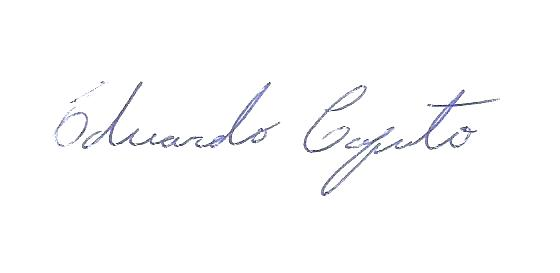 Eduardo Caputo